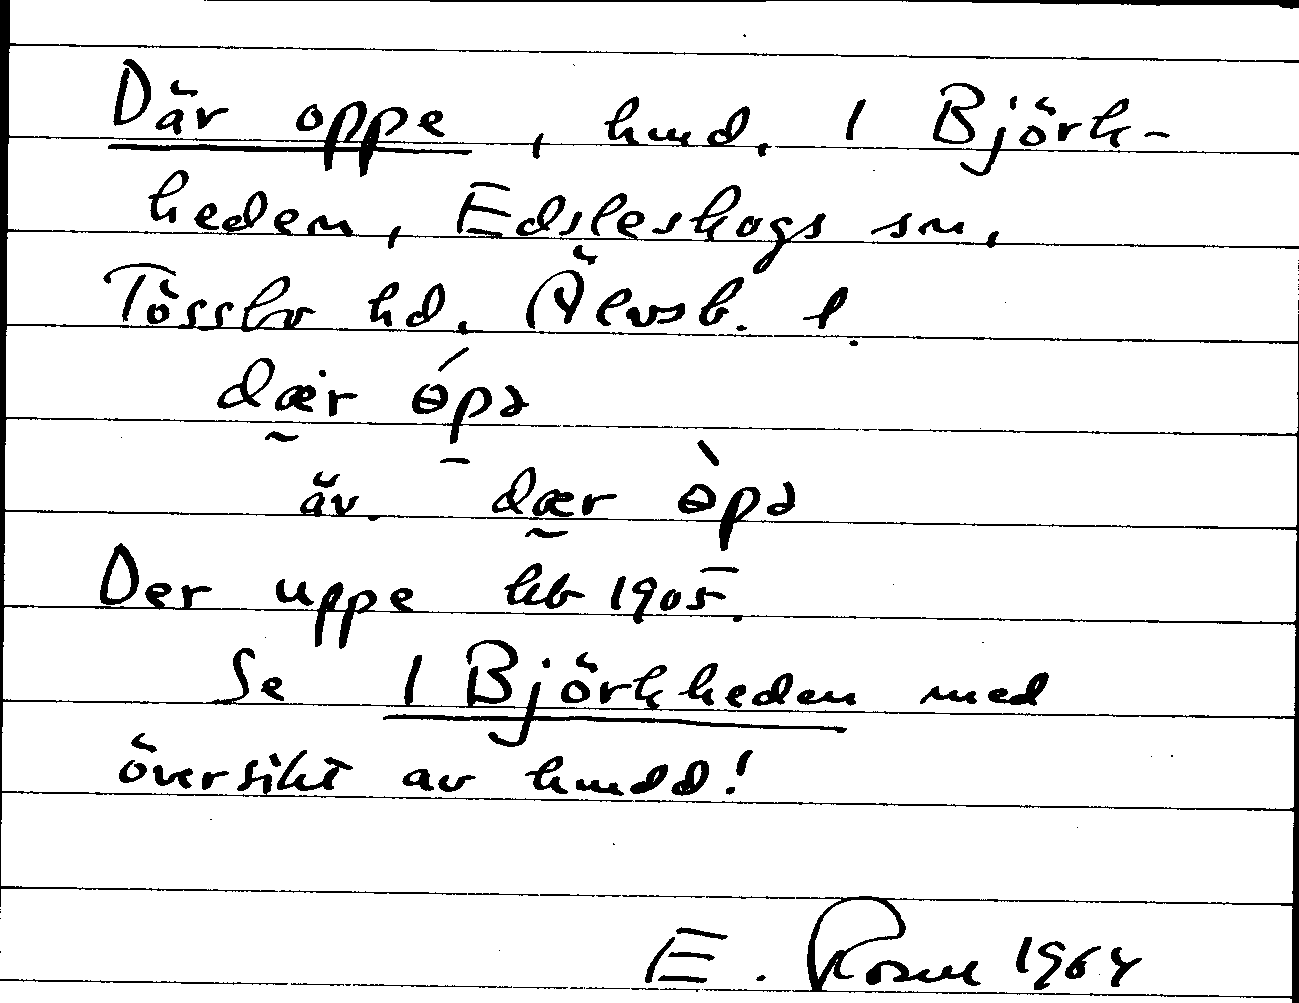 Där oppe, hmd. 1 Björk-
heden, Edsleskogs sn,
Tössbo hd. Älvsb. l.
dær ópə
äv. dær òpə
Der uppe kb 1905.
Se 1 Björkheden med
översikt av hmdd!
E. Rosell 1964